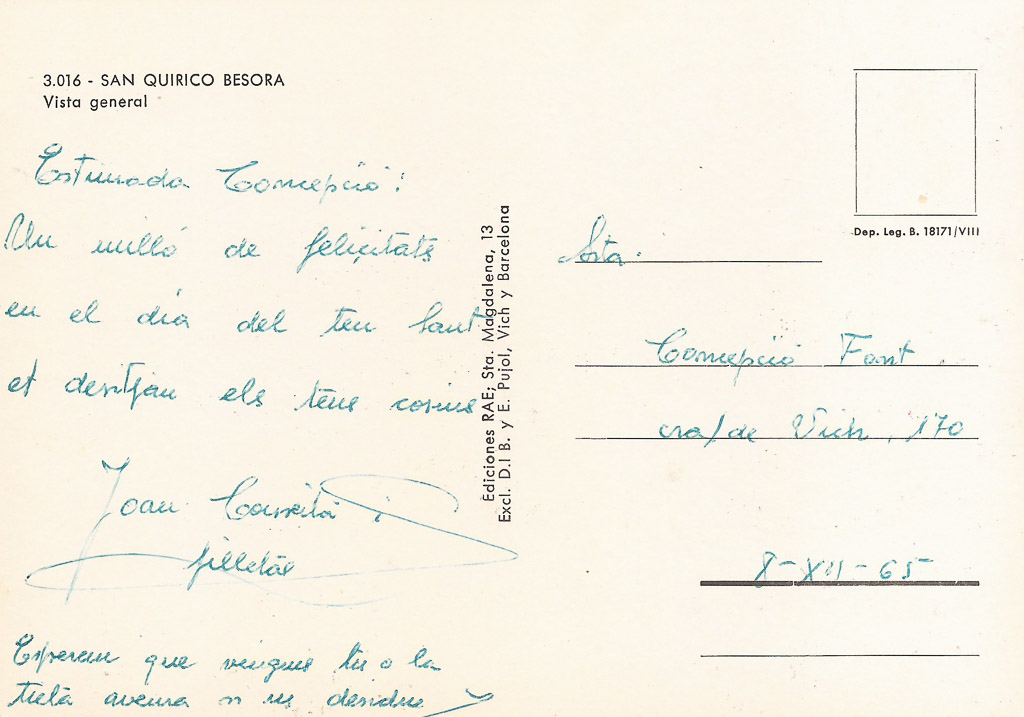 3.016 - SAN QUIRICO BESORA
Vista general
Estimada Concepció:
Un milló de felicitats
en el dia del teu Sant
et desitjan els teus cosins
Joan Conxita i
filletas
Esperem que vinguis tu o la
teta
Ediciones RAE; Sta. Magdalena, 13
Excl. D.I B. y E. Pujol, Vich y Barcelona
Dep. Leg. B. 18171/VIII
Srta.
Concepció Font
cra/de Vich, 170
-XII-65